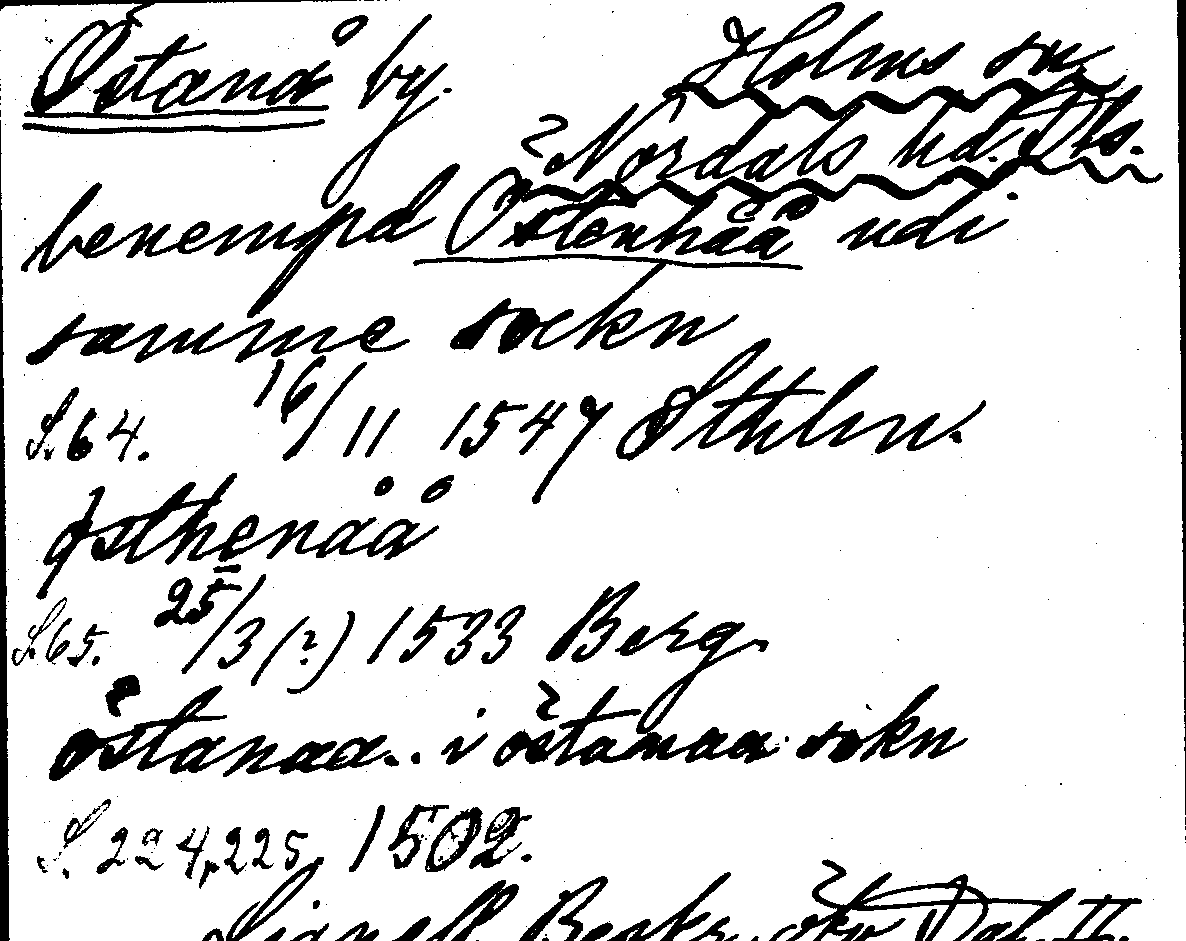 Östanå by. Holms sn
Nordals hd. Dls.
benempd Östenhåå udi
samme sockn
S. 64. 16/11 1547 Sthlm.
østhenåå
S. 65. 25/3 (?) 1533 Berg.
östanaa.. i östamaa sokn
S. 224, 225, 1502.
Lignell Beskr. öfv. Dal. II.